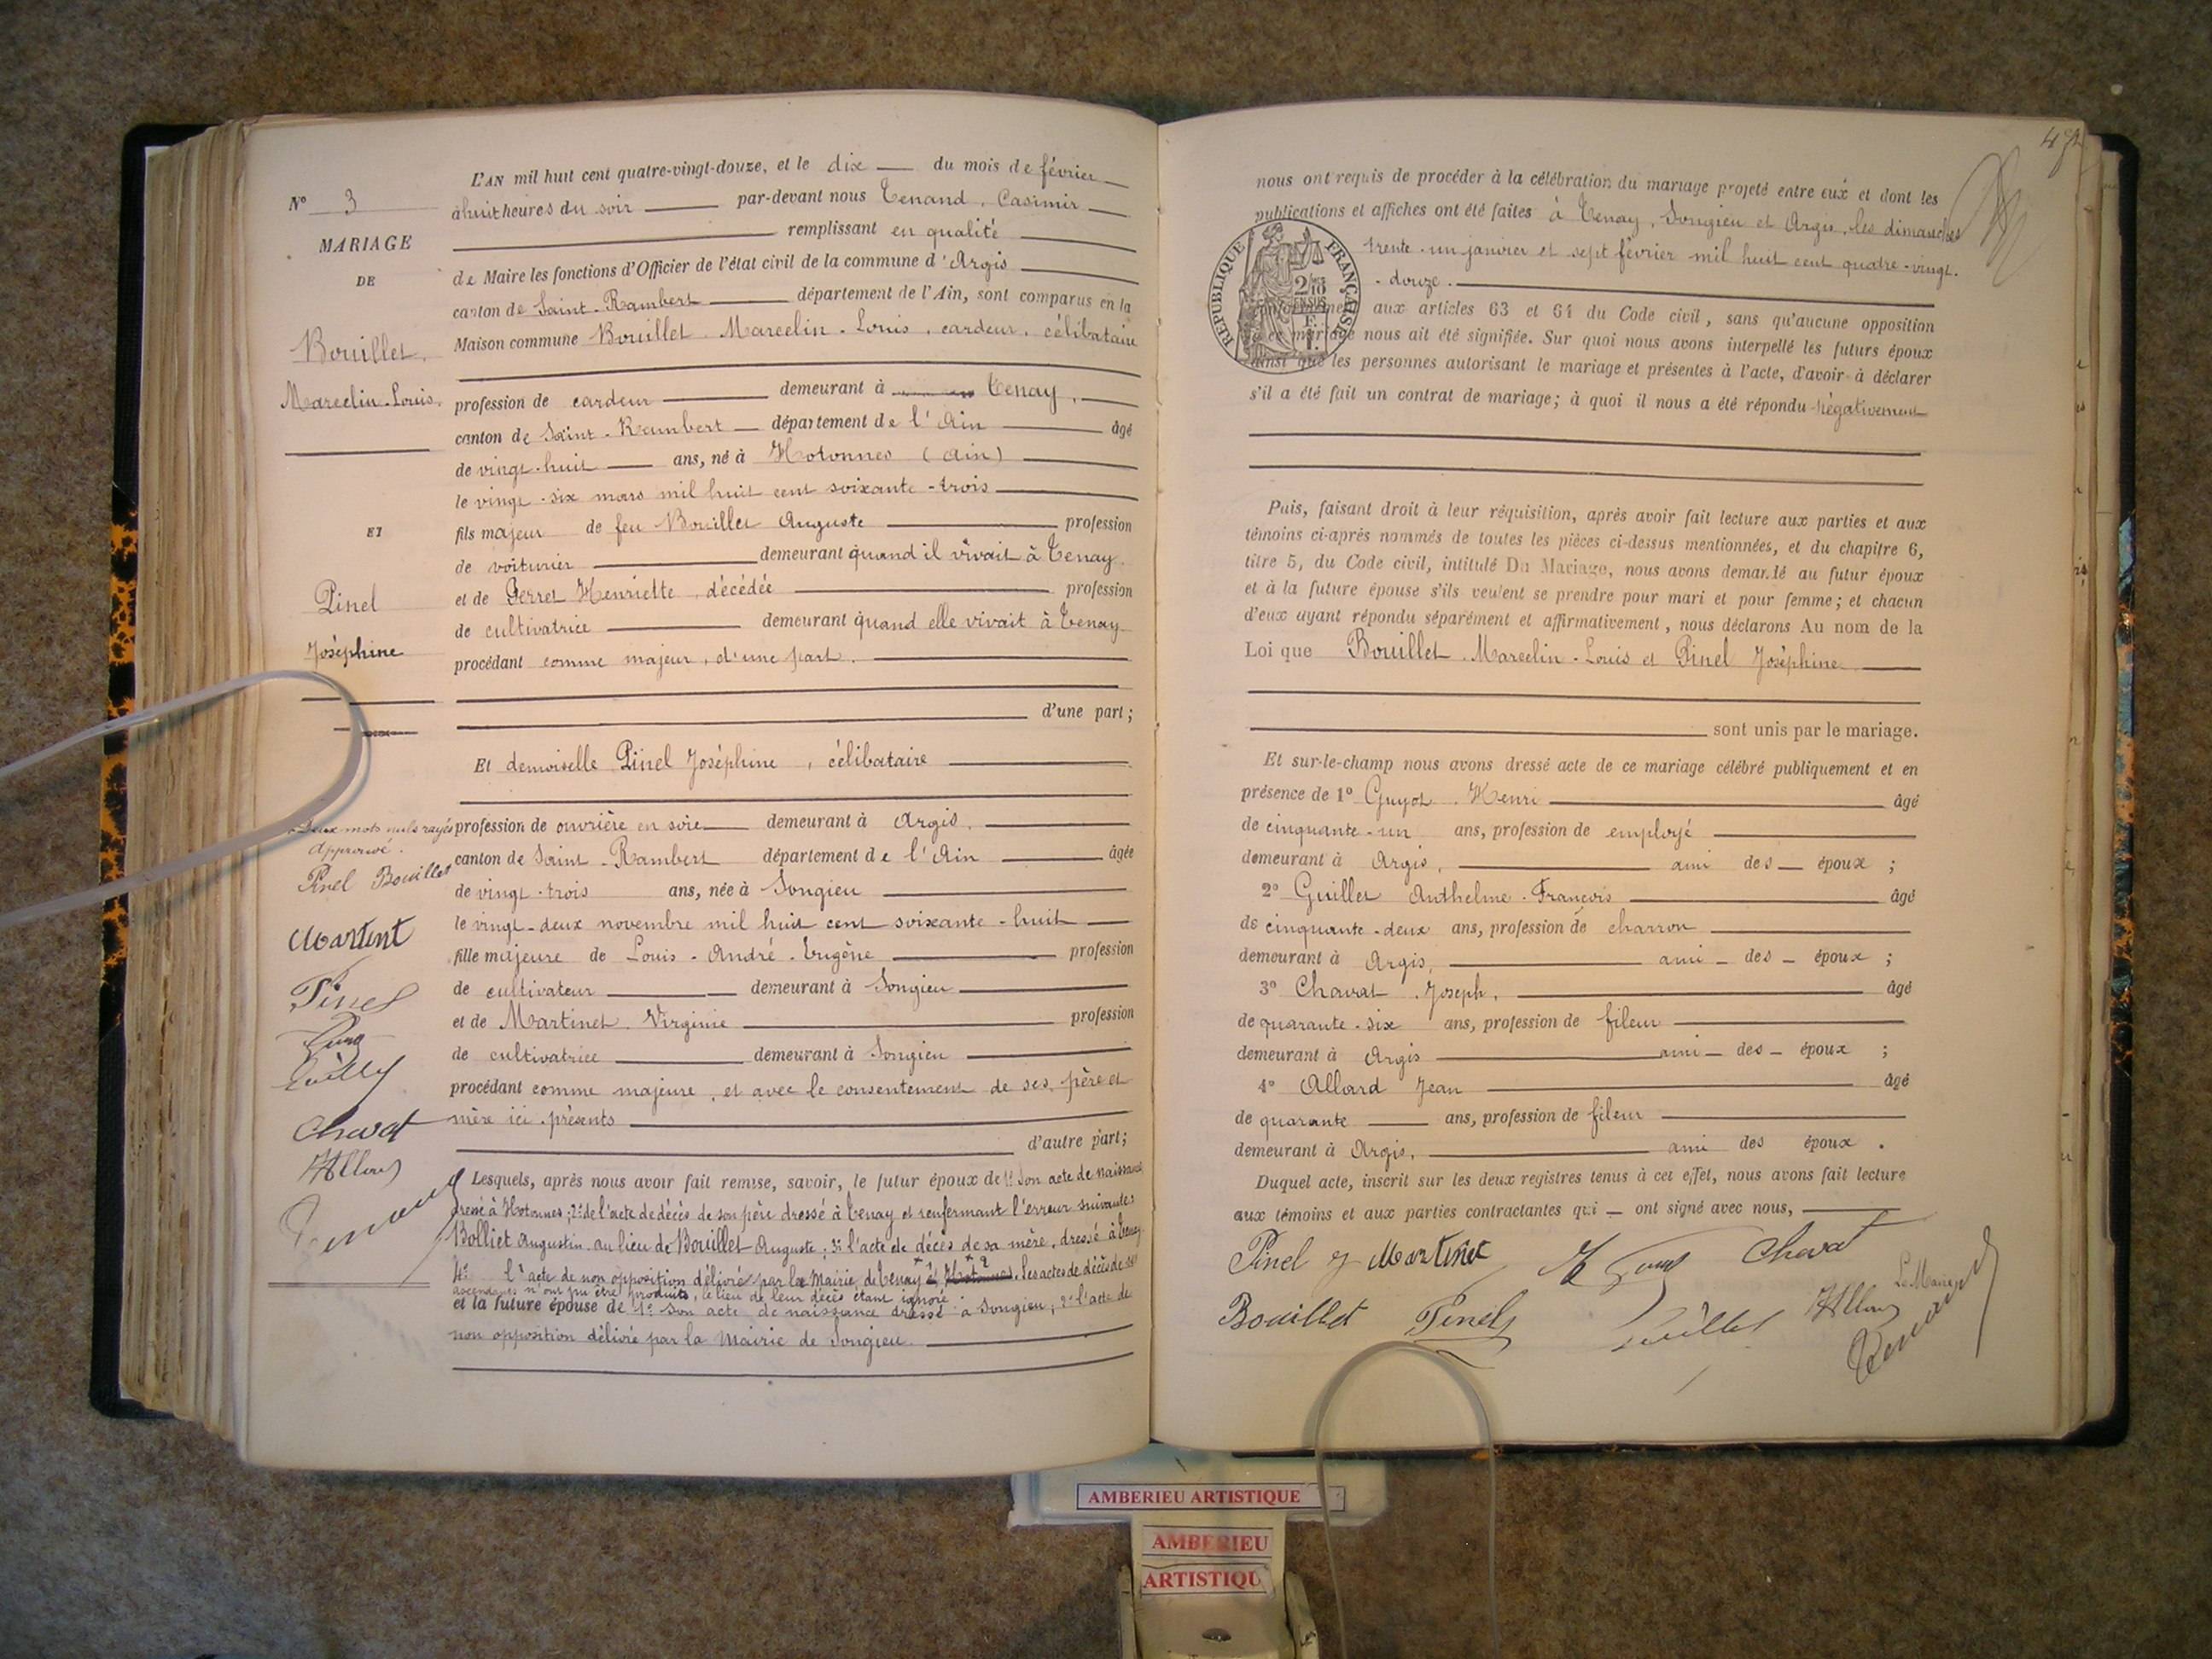 N° 3
MARIAGE
DE
Bouillet,
Marcelin-Louis.
ET
Pinel
Joséphine
Deux mots nuls rayés
Approuvé.
Pinel Bouillet
Martinet
Pinel
Chavat
L'AN mil huit cent quatre-vingt-douze, et le dix — du mois de février
à huit heures du soir — par-devant nous Tenand, Casimir
remplissant en qualité
de Maire les fonctions d'Officier de l'état civil de la commune d'Argis
canton de Saint-Rambert — département de l'Ain, sont comparus en la
Maison commune Bouillet Marcelin-Louis, cardeur, célibataire
profession de cardeur — demeurant à Tenay,
canton de Saint-Rambert — département de l'Ain — âgé
de vingt-huit — ans, né à Hotonnes (Ain)
le vingt-six mars mil huit cent soixante-trois
fils majeur de feu Bouillet Auguste — profession
de voiturier — demeurant quand il vivait à Tenay
et de Perret Henriette, décédée — profession
de cultivatrice — demeurant quand elle vivait à Tenay
procédant comme majeur, d'une part.
d'une part;
Et demoiselle Pinel Joséphine, célibataire
profession de ouvrière en soie — demeurant à Argis,
canton de Saint-Rambert département de l'Ain — âgée
de vingt-trois ans, née à Songieu
le vingt-deux novembre mil huit cent soixante-huit
fille majeure de Louis-André-Eugène — profession
de cultivateur — demeurant à Songieu
et de Martinet Virginie — profession
de cultivatrice — demeurant à Songieu
procédant comme majeure, et avec le consentement de ses père et
mère ici présents
d'autre part;
Lesquels, après nous avoir fait remise, savoir, le futur époux de 1° Son acte de naissance
dressé à Hotonnes; 2° de l'acte de décès de son père dressé à Tenay et renfermant l'erreur suivante:
Bolliet Augustin au lieu de Bouillet Auguste; 3° l'acte de décès de sa mère, dressé à Tenay
4° l'acte de non opposition délivré par la Mairie de Tenay et Hotonnes. Les actes de décès de ses
ascendants n'ont pu être produits, le lieu de leur décès étant ignoré
et la future épouse de 1° Son acte de naissance dressé à Songieu; 2° l'acte de
non opposition délivré par la Mairie de Songieu.
nous ont requis de procéder à la célébration du mariage projeté entre eux et dont les
publications et affiches ont été faites à Tenay, Songieu et Argis, les dimanches
trente-un janvier et sept février mil huit cent quatre-vingt-
-douze.
REPUBLIQUE FRANÇAISE
2/10 EN SUS
1 F.
Conformément aux articles 63 et 64 du Code civil, sans qu'aucune opposition
à ce mariage nous ait été signifiée. Sur quoi nous avons interpellé les futurs époux
ainsi que les personnes autorisant le mariage et présentes à l'acte, d'avoir à déclarer
s'il a été fait un contrat de mariage; à quoi il nous a été répondu négativement
Puis, faisant droit à leur réquisition, après avoir fait lecture aux parties et aux
témoins ci-après nommés de toutes les pièces ci-dessus mentionnées, et du chapitre 6,
titre 5, du Code civil, intitulé Du Mariage, nous avons demandé au futur époux
et à la future épouse s'ils veulent se prendre pour mari et pour femme; et chacun
d'eux ayant répondu séparément et affirmativement, nous déclarons Au nom de la
Loi que Bouillet Marcelin-Louis et Pinel Joséphine
sont unis par le mariage.
Et sur-le-champ nous avons dressé acte de ce mariage célébré publiquement et en
présence de 1° Guyot Henri — âgé
de cinquante-un ans, profession de employé
demeurant à Argis, — ami des — époux ;
2° Guillet Anthelme-François — âgé
de cinquante-deux ans, profession de charron
demeurant à Argis, — ami — des — époux ;
3° Chavat Joseph, — âgé
de quarante-six ans, profession de fileur
demeurant à Argis — ami — des — époux ;
4° Allard Jean — âgé
de quarante — ans, profession de fileur
demeurant à Argis, — ami des époux .
Duquel acte, inscrit sur les deux registres tenus à cet effet, nous avons fait lecture
aux témoins et aux parties contractantes qui — ont signé avec nous,
Pinel J Martinet Chavat
Le Maire
Bouillet Pinel
AMBERIEU ARTISTIQUE
AMBERIEU
ARTISTIQU